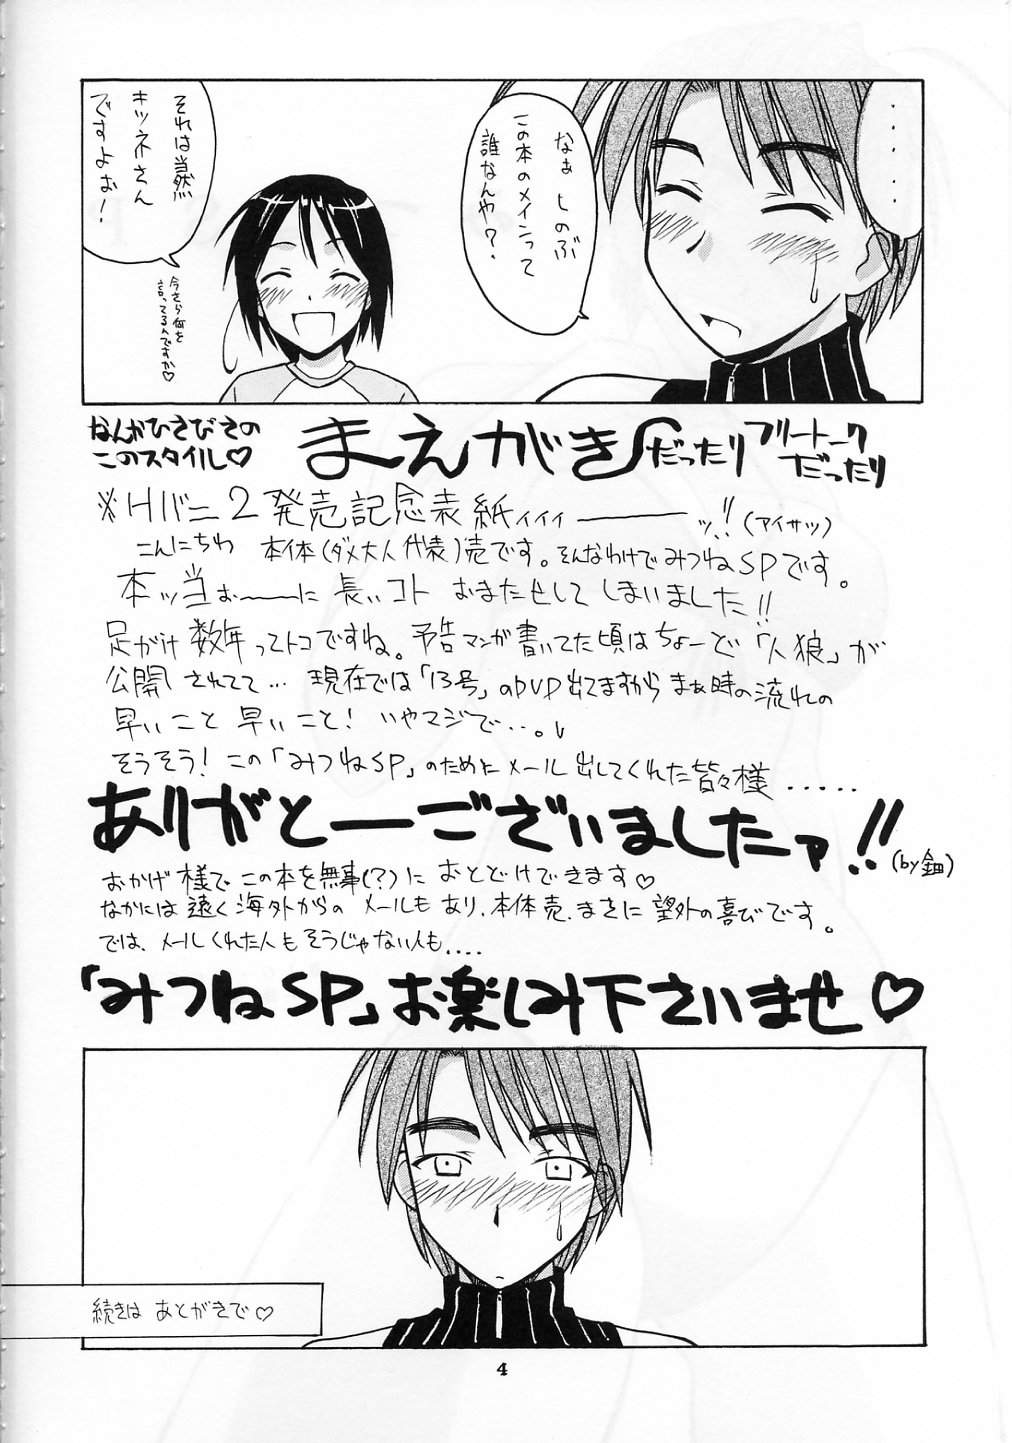 ・・・・・・
なぁ しのぶ
この本のメインって
誰なんや?
それは当然
キツネさん
ですよぉ!
今さら何を
言ってるんですか♡
なんかひさびさの
このスタイル♡
まえがき
だったり
フリートーク
だったり
※Hバニ2発売記念表紙ィィィ――――ッ!!(アイサツ)
こんにちわ 本体(ダメ大人代表)売です。そんなわけでみつねSPです。
本ッ当ぉ――に 長いコト おまたせして しまいました!!
足がけ 数年ってトコですね。予告マンガ書いてた頃はちょーど「人狼」が
公開されてて... 現在では「13号」のDVD出てますから まぁ時の流れの
早いこと 早いこと! いやマジで...。
そうそう!この「みつねSP」のためにメール出してくれた皆々様 .....
ありがとーございましたァ!!
おかげ様でこの本を無事(?)に おとどけできます♡
なかには遠く海外からの メールもあり、本体売、まさに望外の喜びです。
では、メールくれた人もそうじゃない人も....
「みつねSP」お楽しみ下さいませ♡
続きは あとがきで♡
4